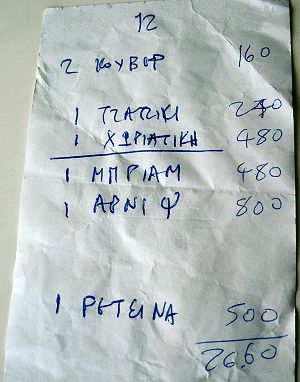 12
2 ΚΟΥΒΕΡ 160
1 ΤΖΑΤΖΙΚΙ 240
1 ΧΩΡΙΑΤΙΚΗ 480
1 ΜΠΡΙΑΜ 480
1 ΑΡΝΙ Ψ 800
1 ΡΕΤΣΙΝΑ 500
26.60